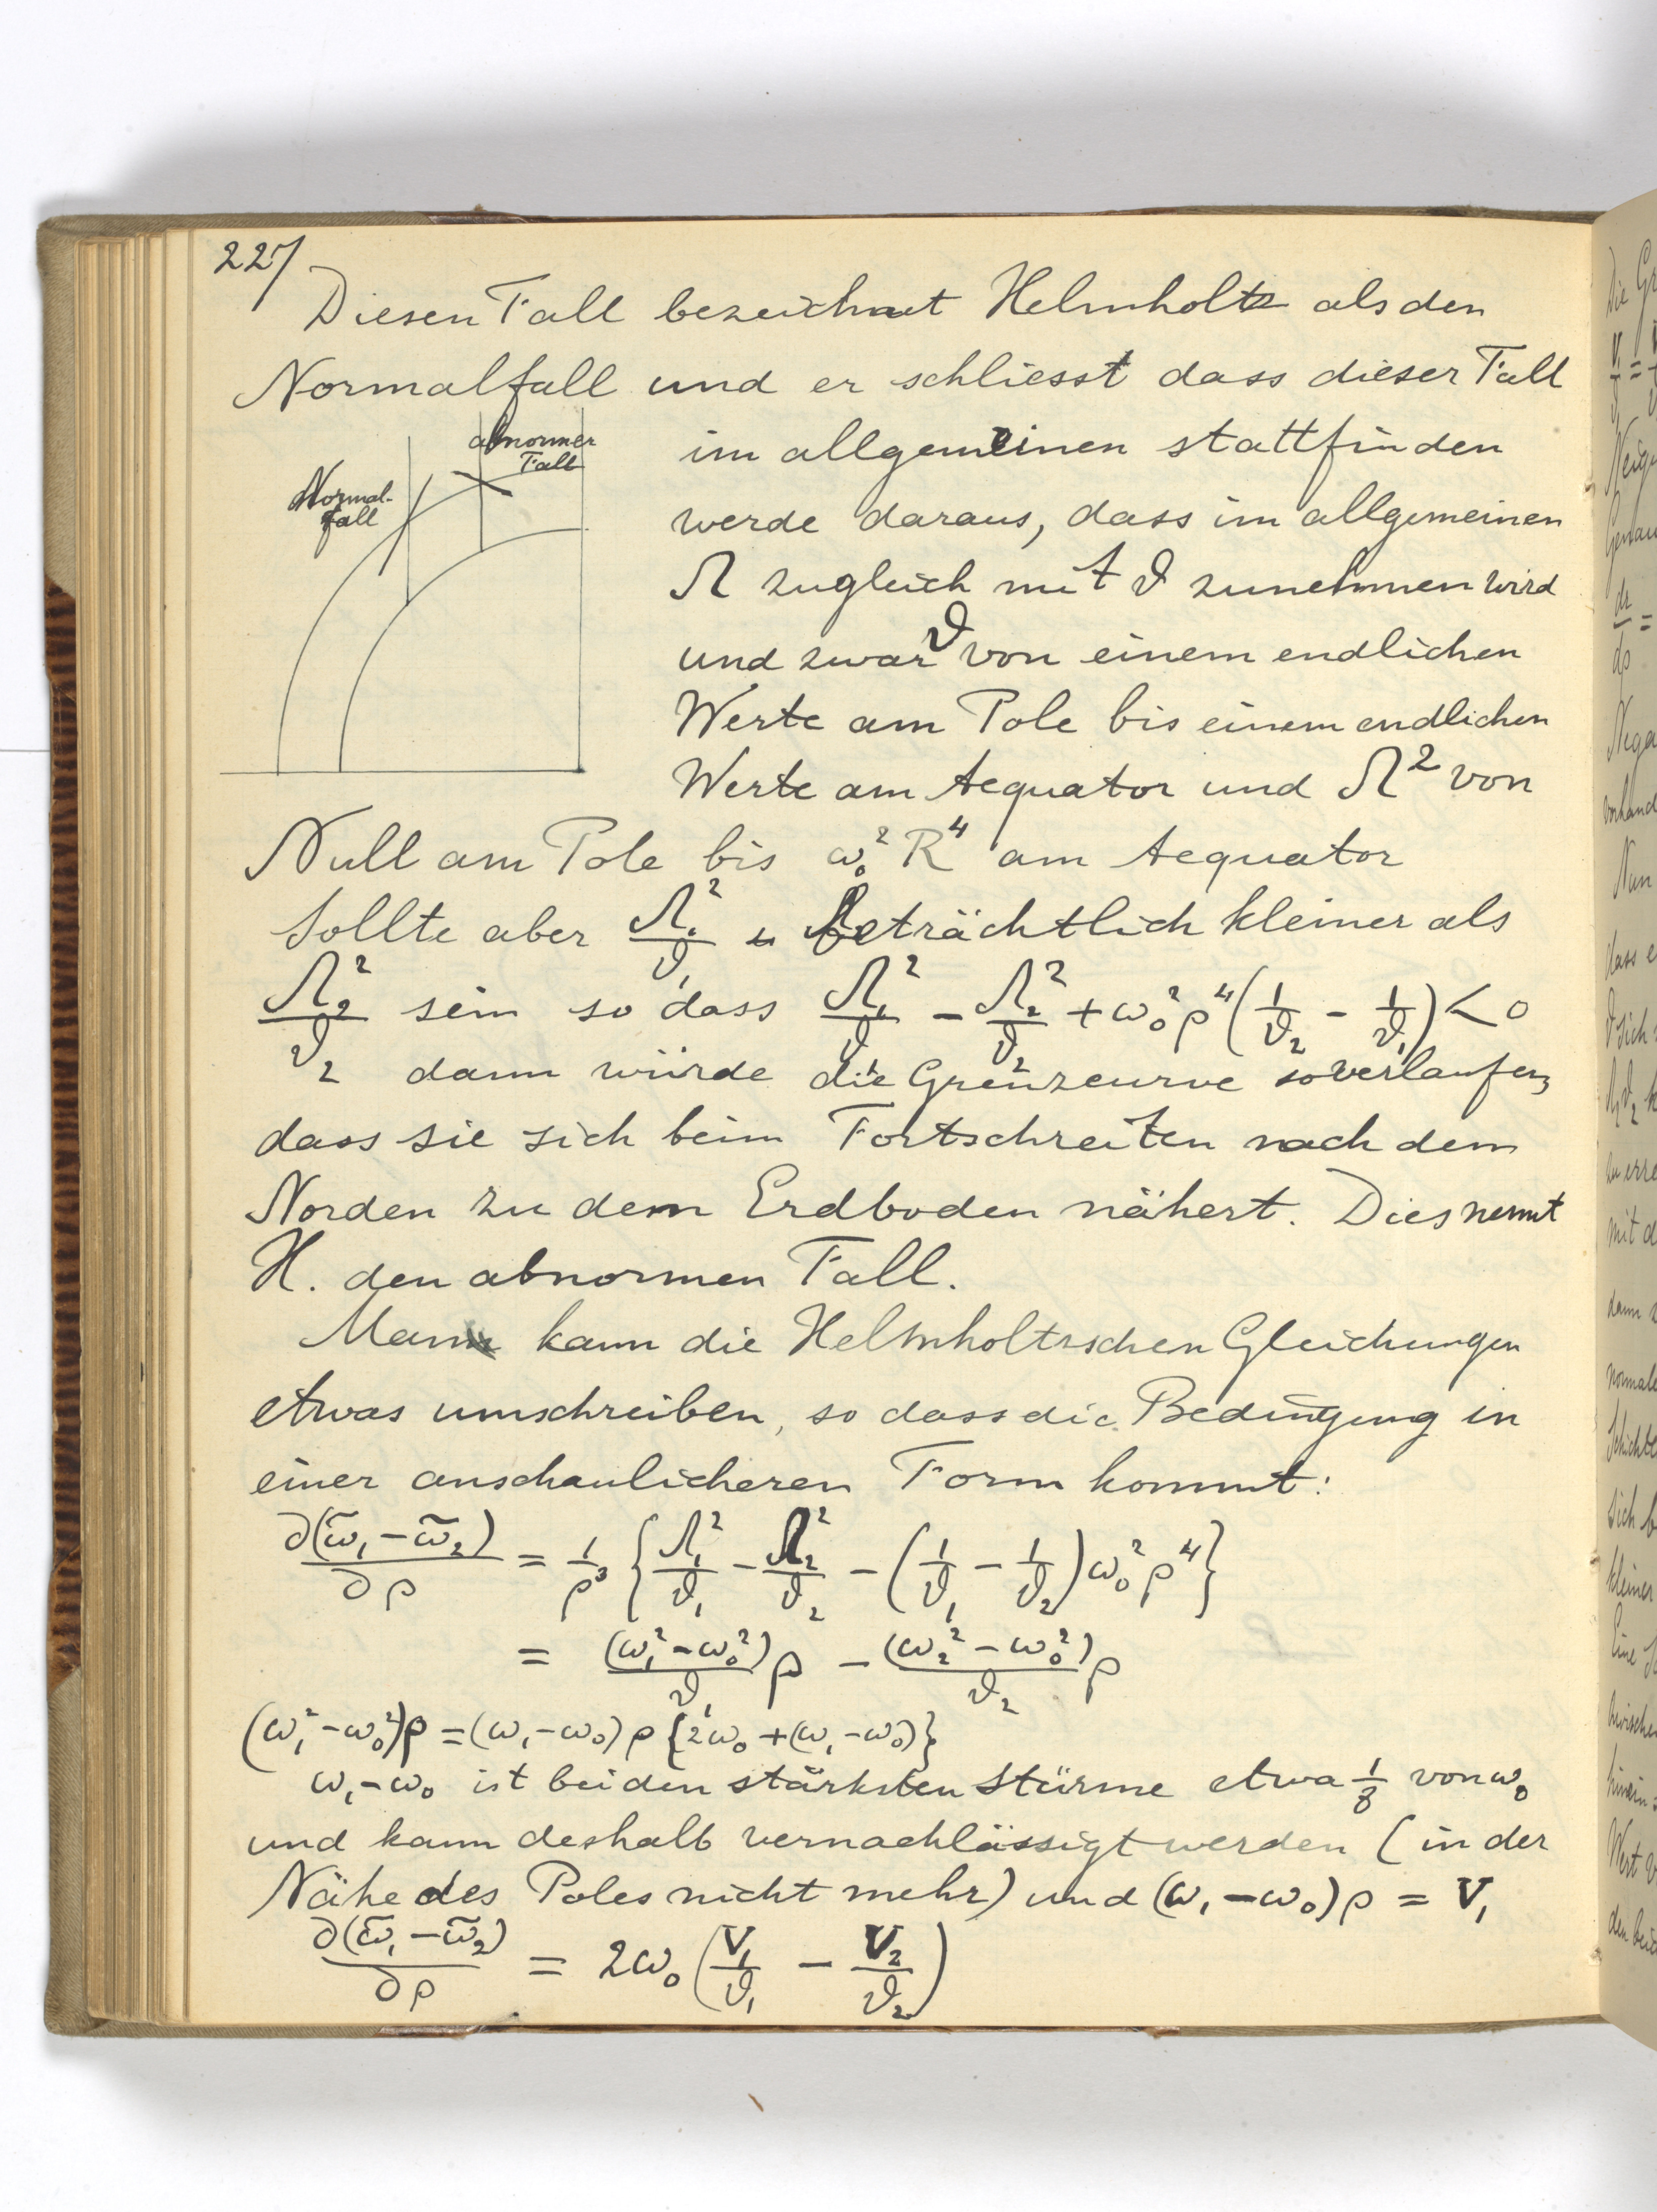 227
Diesen Fall bezeichnet Helmholtz als den
Normalfall und er schliesst dass dieser Fall
abnormer
Fall
Normal-
fall
im allgemeinen stattfinden
werde daraus, dass im allgemeinen
Ω zugleich mit ϑ zunehmen wird
und zwar ϑ von einem endlichen
Werte am Pole bis einem endlichen
Werte am Aequator und Ω² von
Null am Pole bis ω₀² R⁴ am Aequator
Sollte aber Ω₁²/ϑ₁ beträchtlich kleiner als
Ω₂²/ϑ₂ sein so dass Ω₁²/ϑ₁ − Ω₂²/ϑ₂ + ω₀²ρ⁴(1/ϑ₂ − 1/ϑ₁) < 0
dann würde die Grenzcurve so verlaufen,
dass sie sich beim Fortschreiten nach dem
Norden zu dem Erdboden nähert. Dies nennt
H. den abnormen Fall.
Man kann die Helmholtzschen Gleichungen
etwas umschreiben, so dass die Bedingung in
einer anschaulicheren Form kommt:
∂(ω̃₁ − ω̃₂)/∂ρ = 1/ρ³ {Ω₁²/ϑ₁ − Ω₂²/ϑ₂ − (1/ϑ₁ − 1/ϑ₂) ω₀²ρ⁴}
= (ω₁² − ω₀²)/ϑ₁ ρ − (ω₂² − ω₀²)/ϑ₂ ρ
(ω₁² − ω₀²)ρ = (ω₁ − ω₀) ρ {2ω₀ + (ω₁ − ω₀)}
ω₁ − ω₀ ist bei den stärksten Stürme etwa 1/8 von ω₀
und kann deshalb vernachlässigt werden (in der
Nähe des Poles nicht mehr) und (ω₁ − ω₀)ρ = V₁
∂(ω̃₁ − ω̃₂)/∂ρ = 2ω₀ (V₁/ϑ₁ − V₂/ϑ₂)